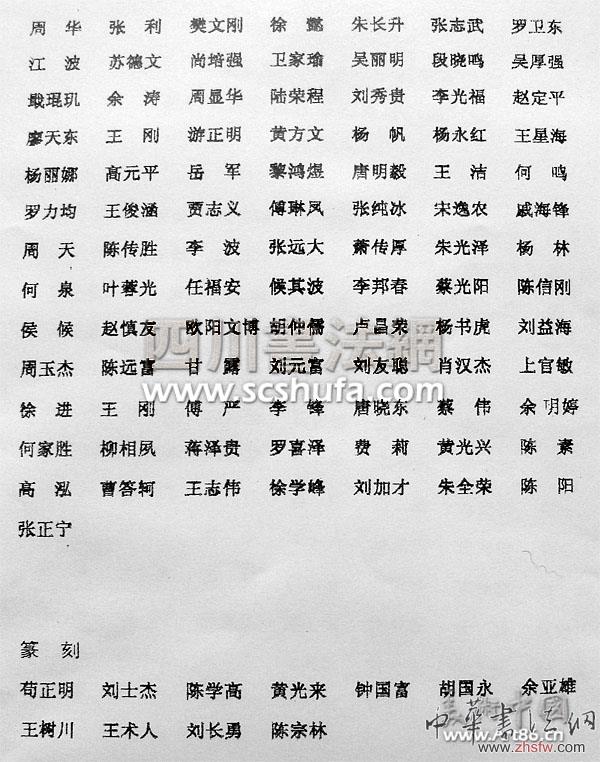 周 华 张 利 樊文刚 徐 懿 朱长升 张志武 罗卫东
江 波 苏德文 尚培强 卫家瑜 吴丽明 段晓鸣 吴厚强
戢琨玑 余 涛 周显华 陆荣程 刘秀贵 李光福 赵定平
廖天东 王 刚 游正明 黄方文 杨 帆 杨永红 王星海
杨丽娜 高元平 岳 军 黎鸿煜 唐明毅 王 洁 何 鸣
罗力均 王俊涵 贾志义 傅琳凤 张纯冰 宋逸农 戚海锋
周 天 陈传胜 李 波 张远大 萧传厚 朱光泽 杨 林
何 泉 叶蓉光 任福安 候其波 李邦春 蔡光阳 陈信刚
侯 候 赵慎友 欧阳文博 胡仲儒 卢昌荣 杨书虎 刘益海
四川書法網
周玉杰 陈远富 甘 露 刘元富 刘友聪 肖汉杰 上官敏
www.scshufa.com
徐 进 王 刚 傅 严 李 锋 唐晓东 蔡 伟 余明婷
何家胜 柳相夙 蒋泽贵 罗喜泽 费 莉 黄光兴 陈 素
高 泓 曹答轲 王志伟 徐学峰 刘加才 朱全荣 陈 阳
张正宁
篆 刻
苟正明 刘士杰 陈学高 黄光来 钟国富 胡国永 余亚雄
王树川 王术人 刘长勇 陈宗林
中華書法網
www.zhsfw.com